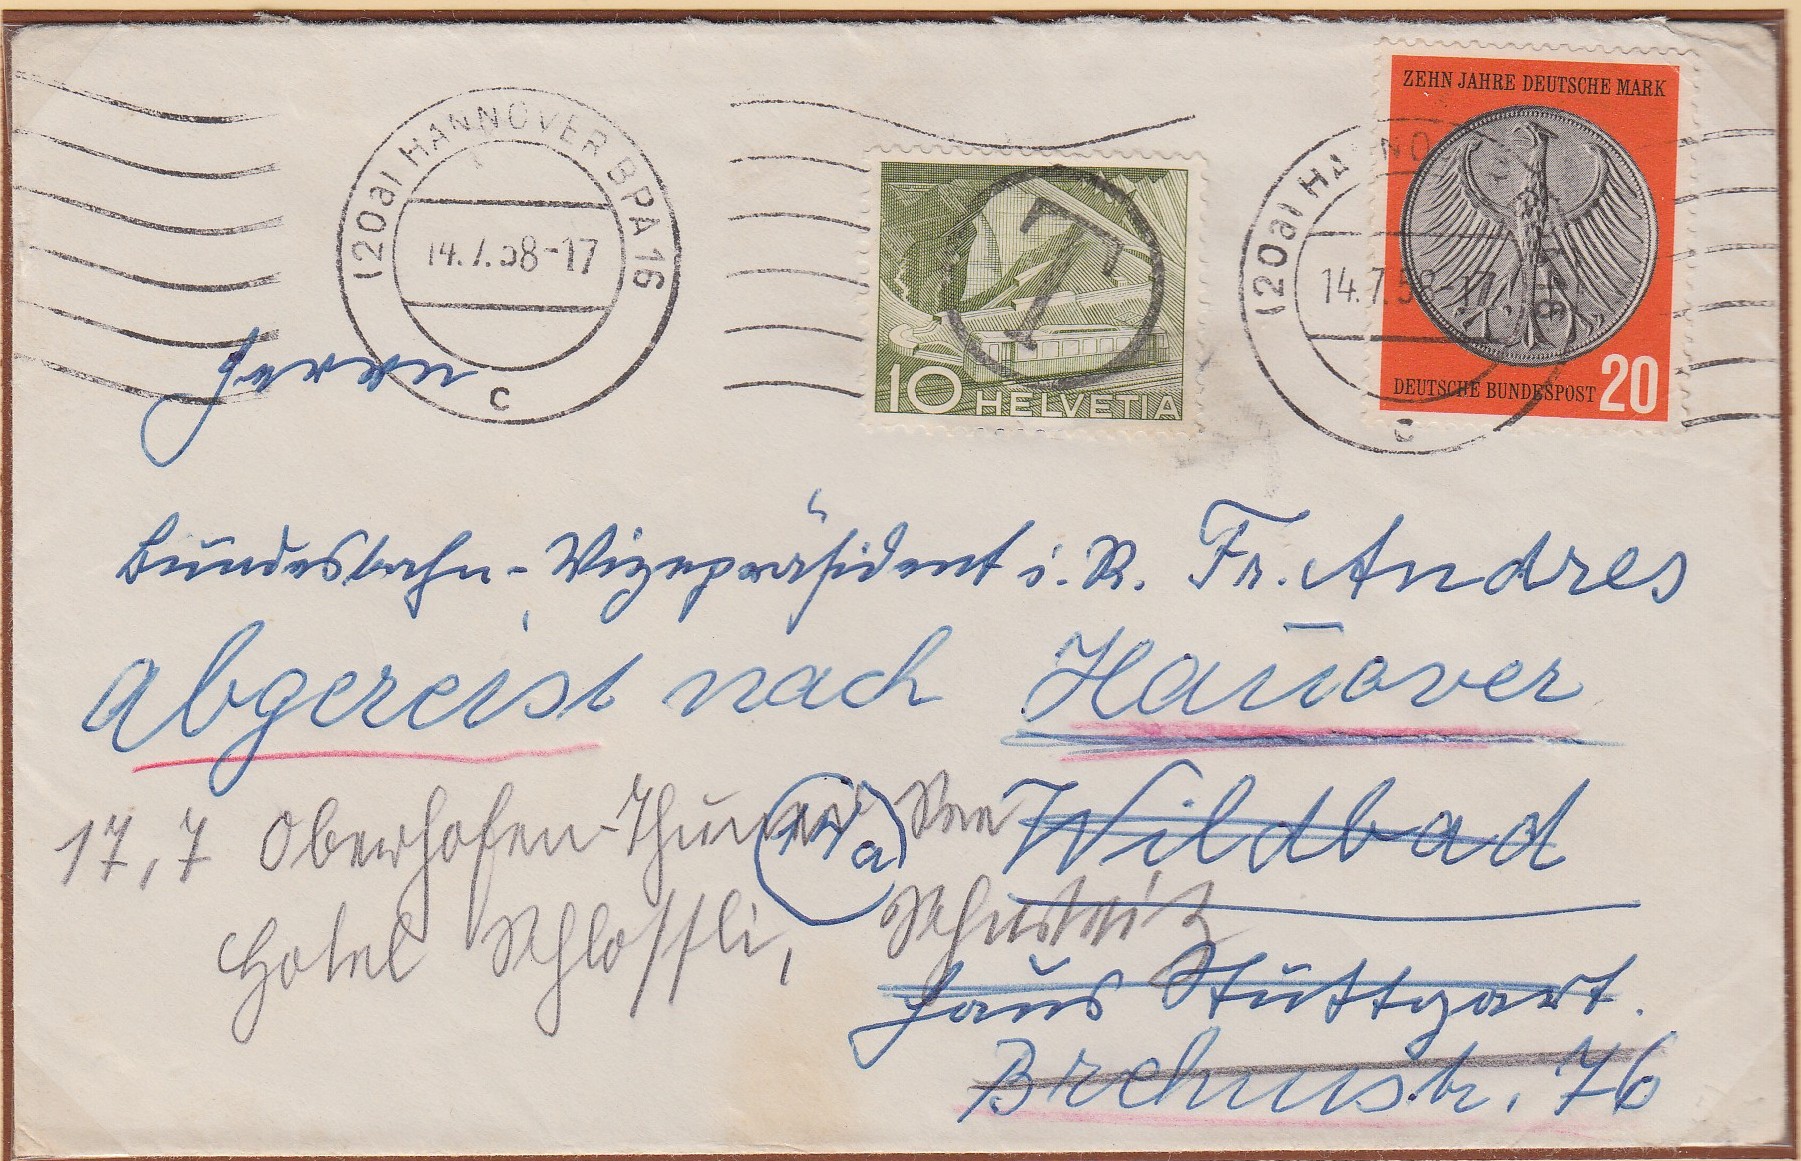 (20a) HANNOVER BPA 16
14.7.58-17
c
T
10 HELVETIA
ZEHN JAHRE DEUTSCHE MARK
DEUTSCHE BUNDESPOST 20
(20a) HANNO
14.7.58-17
c
Herrn
Bundesbahn-Vizepräsident i. R. Fr. Andres
abgereist nach Han̄over
17,7 Oberhofen-Thuner See
(14a) Wildbad
Hotel Schlössli, Schweiz
Haus Stuttgart.
76